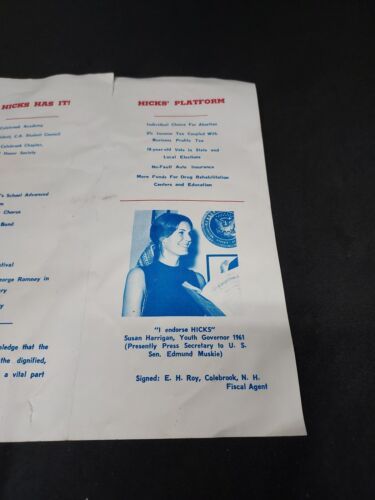 HICKS HAS IT!
Colebrook Academy
dent, C.A. Student Council
Colebrook Chapter,
Honor Society
's School Advanced
m
Chorus
Band
stival
eorge Romney in
ry
y
ledge that the
the dignified,
a vital part
HICKS' PLATFORM
Individual Choice For Abortion
Income Tax Coupled With
Business Profits Tax
18-year-old Vote in State and
Local Elections
No-Fault Auto Insurance
More Funds For Drug Rehabilitation
Centers and Education
"I endorse HICKS"
Susan Harrigan, Youth Governor 1961
(Presently Press Secretary to U. S.
Sen. Edmund Muskie)
Signed: E. H. Roy, Colebrook, N. H.
Fiscal Agent